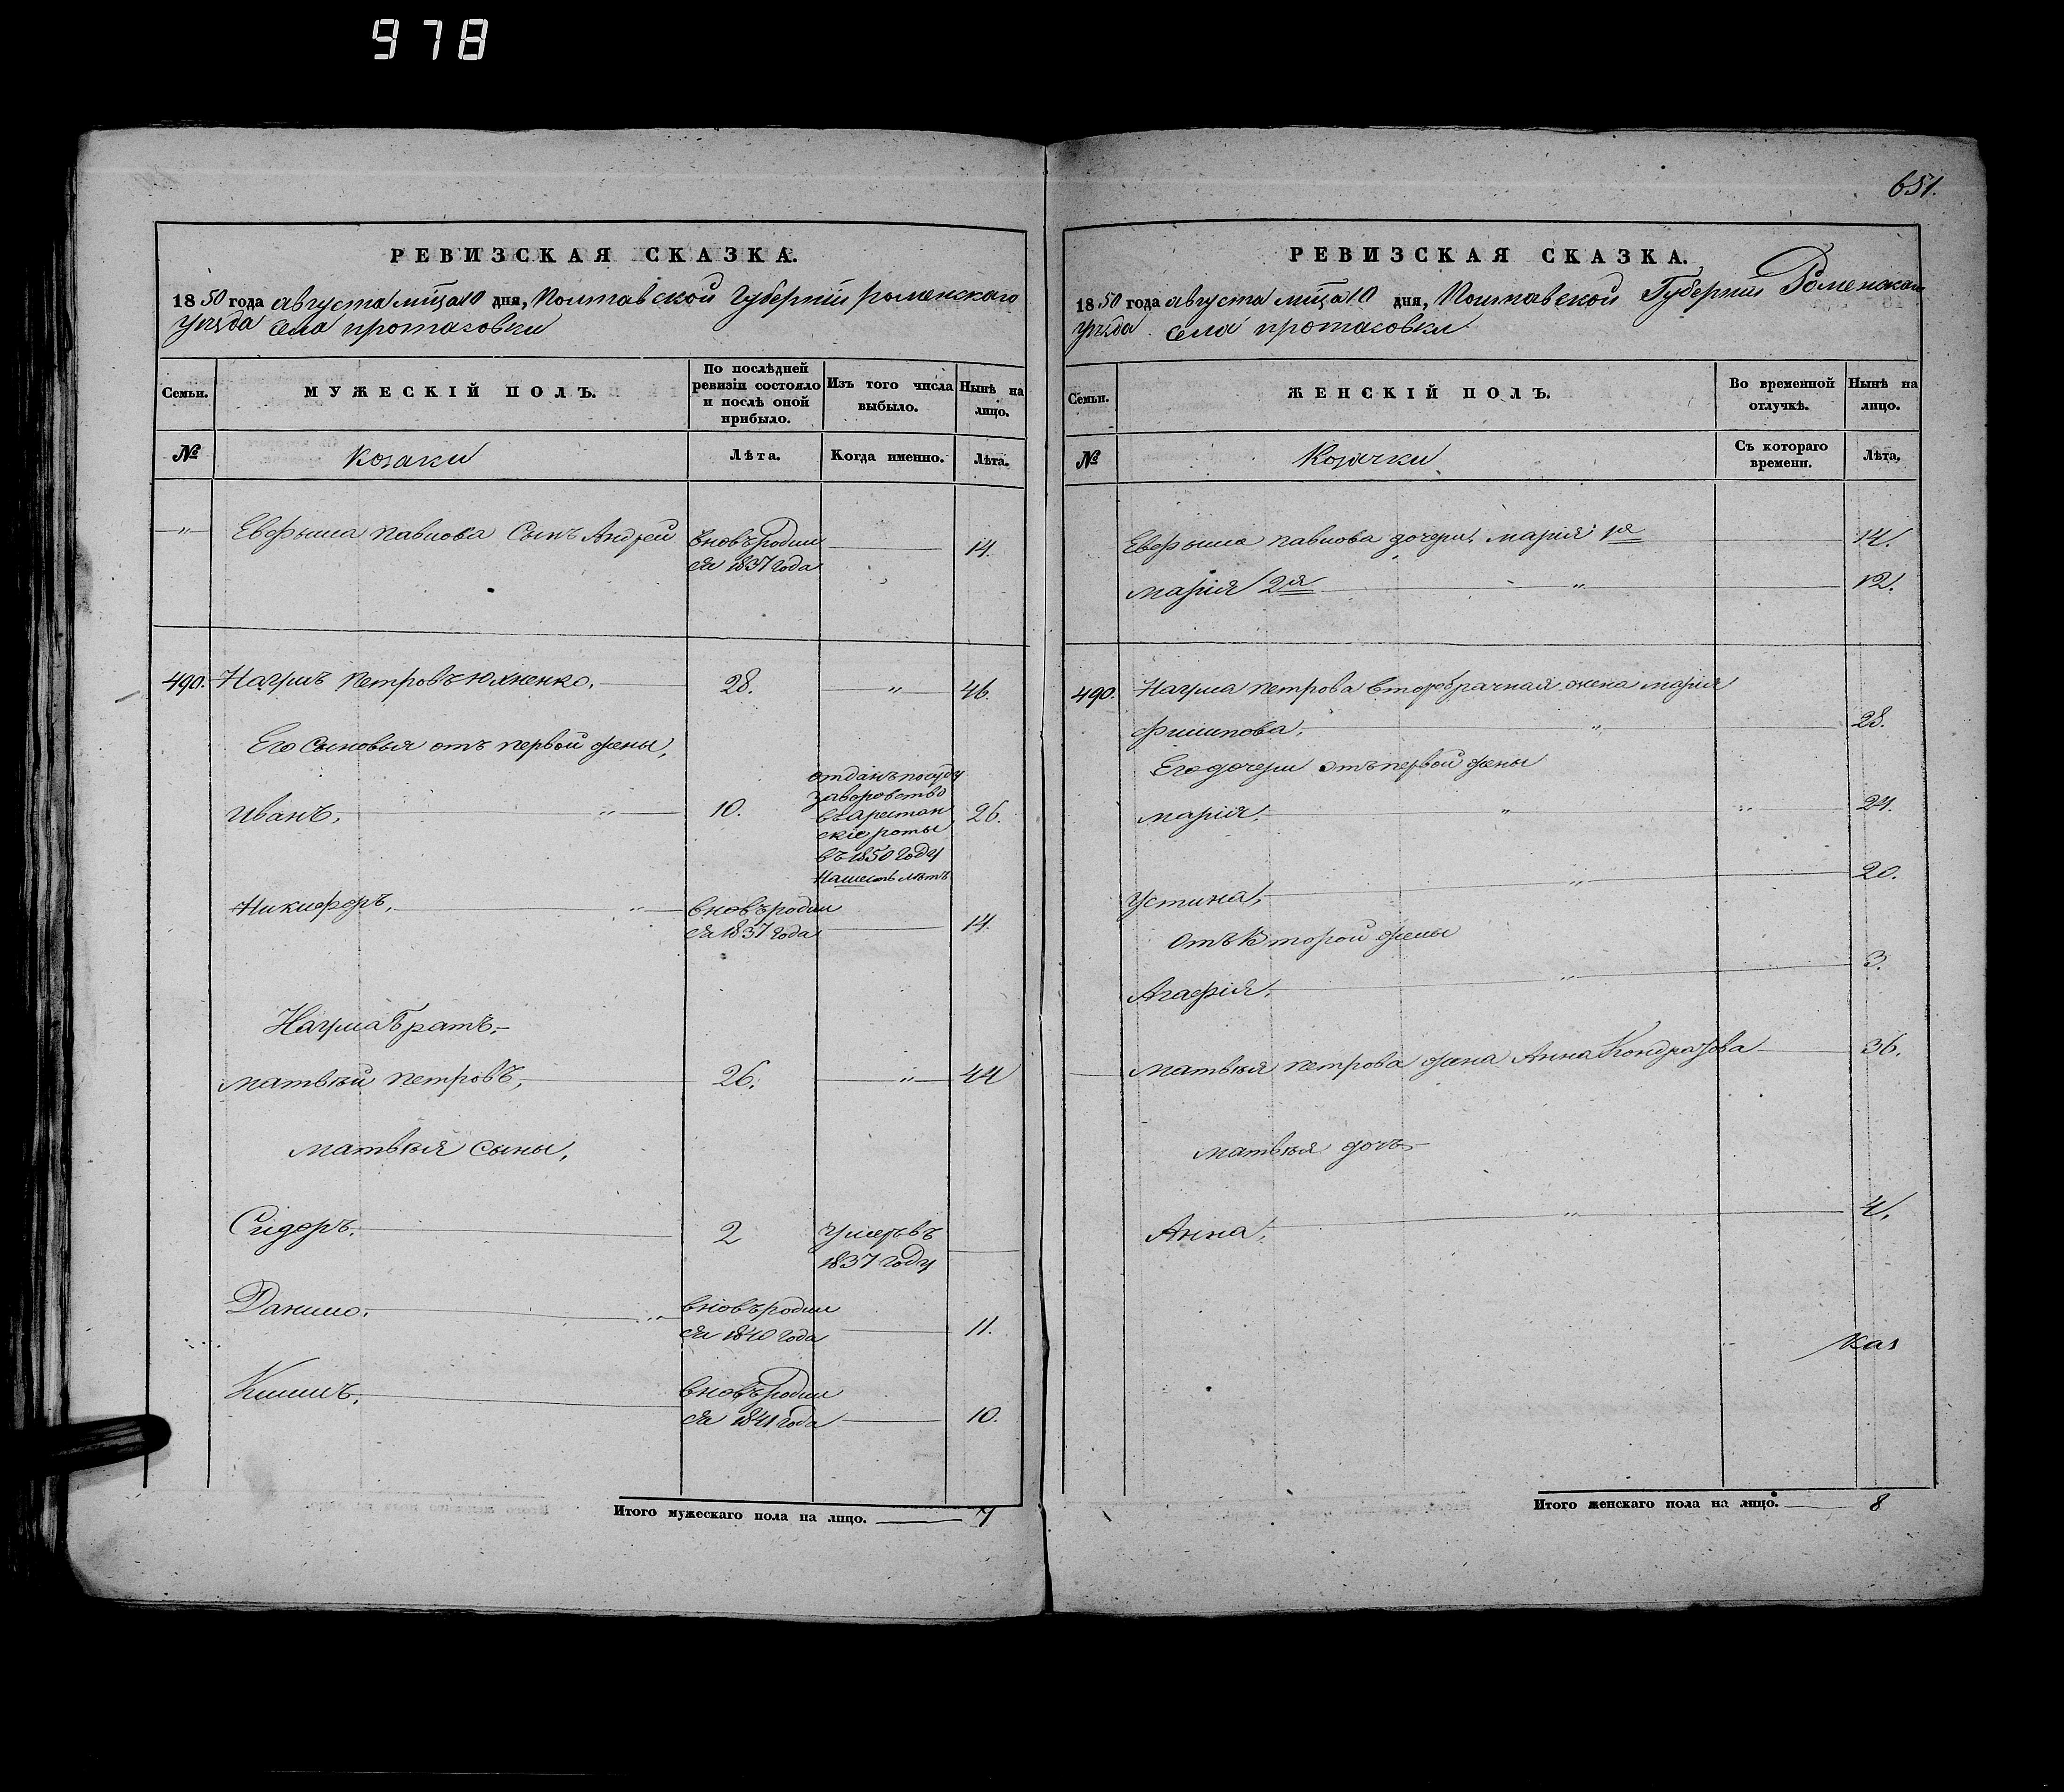 978
651.
РЕВИЗСКАЯ СКАЗКА.
1850 года августа мца 10 дня, Полтавской Губерніи роменскаго
уѣзда села протасовки
Семьи.
МУЖЕСКІЙ ПОЛЪ.
По послѣдней
ревизіи состояло
и послѣ оной
прибыло.
Изъ того числа
выбыло.
Нынѣ на
лицо.
№
Козаки
Лѣта.
Когда именно.
Лѣта.
〃 Евфыма павлова Сынъ Андрей
вновь родил
ся 1837 года
14.
490. Наумъ петровъ юхненко. 28. 〃 46.
Его Сыновья отъ первой жены,
Иванъ, 〃 10.
отданъ по суду
за воровство
въ арестан
скіе роты
въ 1850 году
На шесть лѣтъ
26.
Никифоръ, 〃
вновь родил
ся 1837 года
14.
Наума Братъ,
матвѣй петровъ, 26. 〃 44
матвѣя сыны,
Сидоръ. 2
Умеръ въ
1837 году
Данило. 〃
вновь родил
ся 1840 года
11.
Климъ,
вновь родил
ся 1841 года
10.
Итого мужескаго пола на лицо. 7
РЕВИЗСКАЯ СКАЗКА.
1850 года августа мца 10 дня, Полтавской Губерніи Роменскаго
уѣзда села протасовки
Семьи.
ЖЕНСКІЙ ПОЛЪ.
Во временной
отлучкѣ.
Нынѣ на
лицо.
№
Козачки
Съ котораго
времени.
Лѣта.
Евфыма павлова дочери: марія 1я 14.
марія 2я 〃 12.
490. Наума петрова второбрачная жена марія
филипова, 〃 28.
Его дочери отъ первой жены
марія, 〃 〃 24.
Устина, 〃 20.
отъ второй жены
Агафія, 〃 3.
матвѣя петрова жена Анна Кондратова 36.
матвѣя дочь
Анна, 〃 4.
Каз
Итого женскаго пола на лицо. 8